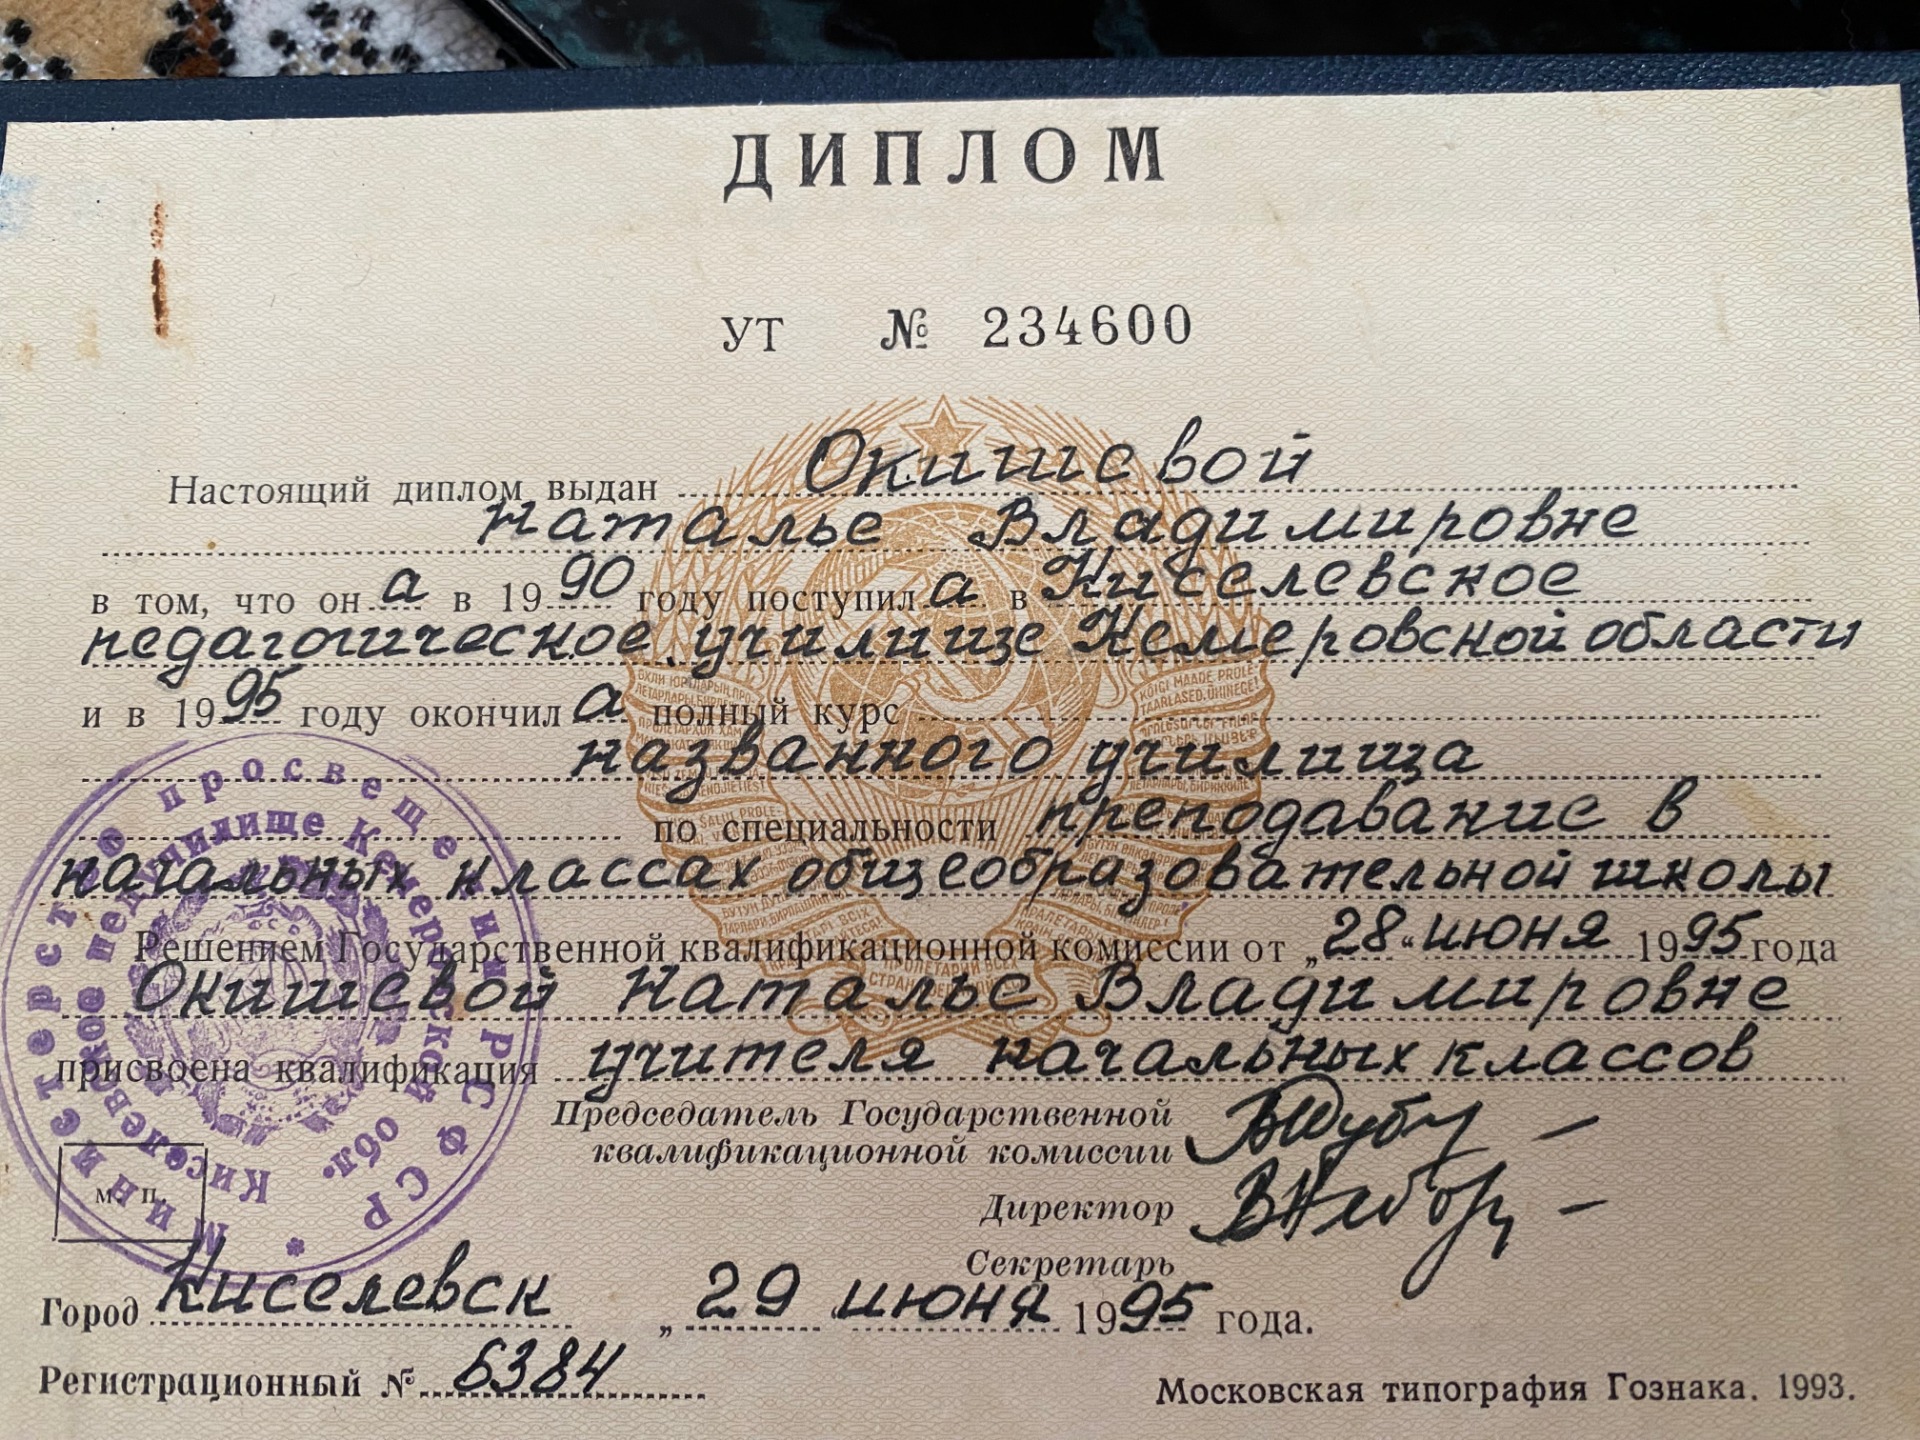 ДИПЛОМ
УТ № 234600
Настоящий диплом выдан Окишевой
Наталье Владимировне
в том, что он а в 19 90 году поступил а в Киселевское
педагогическое училище Кемеровской области
и в 19 95 году окончил а полный курс
названного училища
по специальности преподавание в
начальных классах общеобразовательной школы
Решением Государственной квалификационной комиссии от „28“ июня 1995 года
Окишевой Наталье Владимировне
присвоена квалификация учителя начальных классов
Председатель Государственной
квалификационной комиссии
Директор
Секретарь
Министерство просвещения РСФСР
Киселевское педучилище Кемеровской обл.
м. п.
Город Киселевск „ 29 июня 1995 года.
Регистрационный № 6384
Московская типография Гознака. 1993.